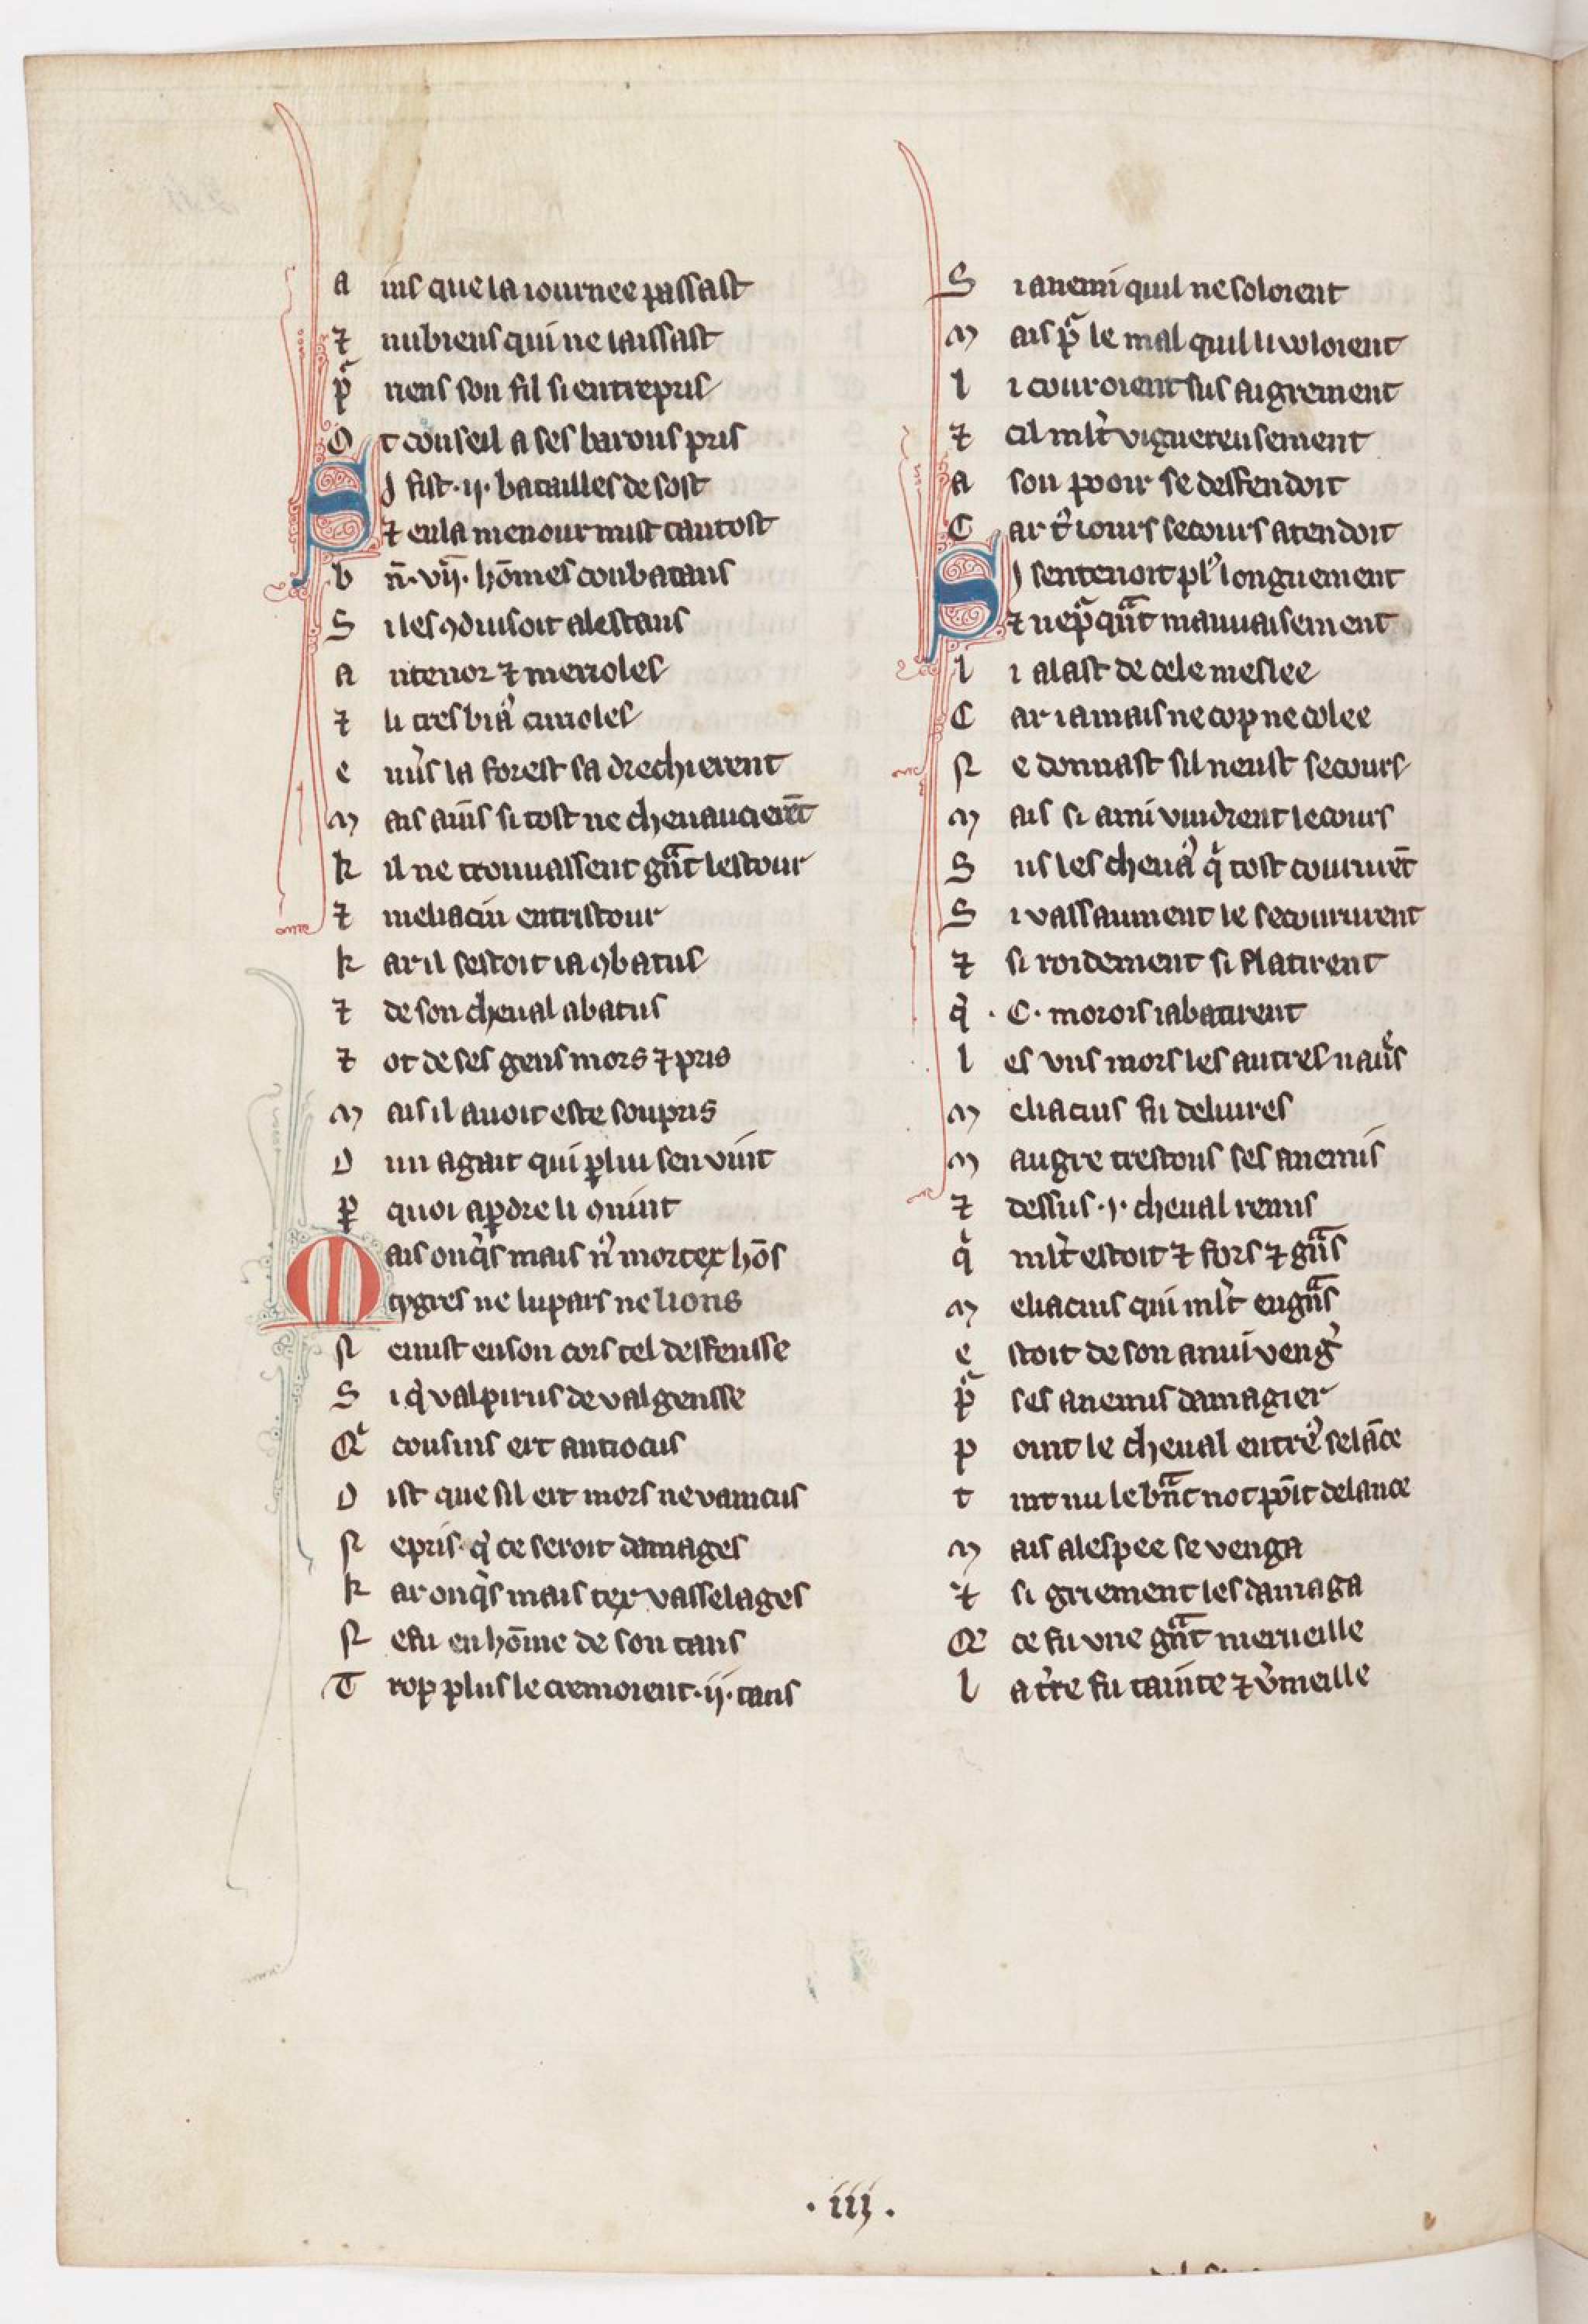 a ins que la iournee passast
⁊ nubiens qui ne laissast
pͣ riens son fil si entrepris
O t conseil a ses barons pris
S I fist .ij. batailles de sost
⁊ en la menour mist tantost
b n̄ .vij. hōmes conbatans
S i les ꝯduisoit alestans
a ntenor ⁊ merioles
⁊ li tres biaꝰ curoles
e nuͥs la forest sadrechierent
m ais ains si tost ne cheuaucierēt
k il ne trouuassent gͣnt lestour
⁊ meliacin en tristour
k ar il sestoit ia ꝯbatus
⁊ de son cheual abatus
⁊ ot de ses gens mors ⁊ pris
m ais il auoit este soupris
D un agait qui ꝑ lui sen vint
ꝑ quoi a ꝑdre li ꝯuint
M ais onq̄s mais nꝰ mortex hōs
tygres ne lupars ne lions
N eeust en son cors tel deffensse
S i qͥ valpirus de valgensse
Qͥ cousins ert antiocus
D ist que sil ert mors ne vaincus
N e pris qͥ ce seroit damages
k ar onq̄s mais tex vasselages
N e fu en hōme de son tans
T rop plus le cremoient .ij. tans
S i anemi quil ne soloient
m ais pͣ le mal quil li voloient
l i couroient sus aigrement
⁊ cil ml̄t viguereusement
a son pooir se deffendoit
C ar tͦiours secours atendoit
S I sentenoit plꝰ longuement
⁊ nepͣqͣnt mauuaisement
l i alast de cele meslee
C ar iamais ne cop ne colee
N e donnast sil neust secours
m ais si ami vindrent le cours
S us les cheuaꝰ qͥ tost coururēt
S i vassaument le secoururent
⁊ si roidement si flatirent
qͥ .C. morois i abatirent
l es vns mors les autres naurͤs
m eliacins fu deliures
m augre trestous ses anemis
⁊ dessus .j. cheual remis
qͥ ml̄t estoit ⁊ fors ⁊ gͣns
m eliacins qui ml̄t engͣns
e stoit de son anui vengͥ
pͣ ses anemis damagier
p oint le cheual entrꝰ se lāce
t int nu le bͣnt not pōit de lance
m ais a lespee se venga
⁊ si griement les damaga
Qͤ ce fu vne gͣnt merueille
l a tr̄e fu tainte ⁊ vͥmeille
.iij.